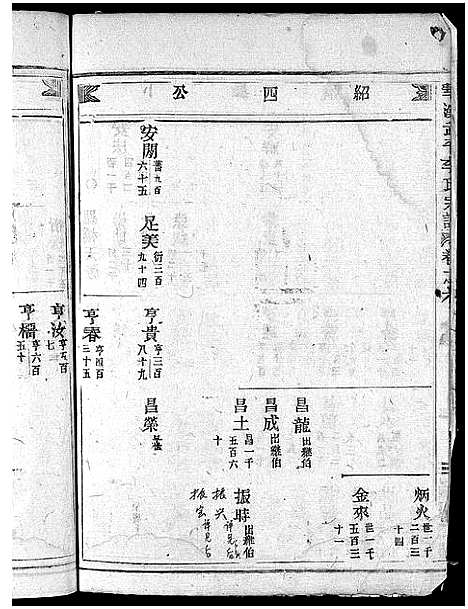 紹四公
炳火 世一千二百三十四
金來 世一千五百三十一
昌龍 出繼伯
昌成 出繼伯
昌士 昌一千五百六十
振時 出繼伯
振興 詳見后
振宏 詳見后
安開 善九百六十五
足美 衍二百九十四
亨貴 亨三百八十九
昌榮
亨春 亨四百三十五
亨汝 亨五百七
亨楣 亨六百五十